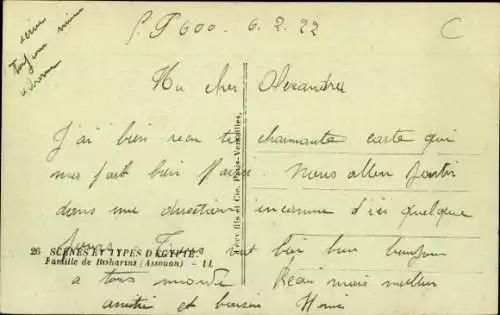 écrire
toujours même
adresse
S. P 600. 6. 2. 22
C
Mon cher Alexandre
J'ai bien reçu ta charmante carte qui
m'a fait bien plaisir. Nous allons partir
dans une direction inconnue d'ici quelque
jours. Tous va bien bon bonjour
a tous monde Reçoi mais meilleur
amitié et baisers Henri
26 SCÈNES ET TYPES D'ÉGYPTE.
Famille de Bisharins (Assouan) - LL
Lévy fils et Cie, Paris-Versailles.